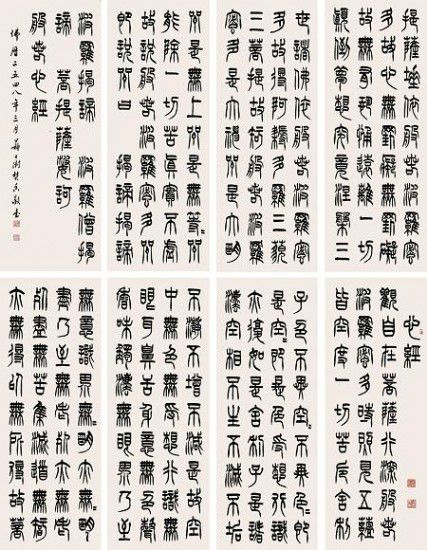 心經
觀自在菩薩行深般若
波羅蜜多時照見五蘊
皆空度一切苦厄舍利
子色不異空空不異色色即
是空空即是色受想行識
亦復如是舍利子是諸
法空相不生不滅不垢
不淨不增不減是故空
中無色無受想行識無
眼耳鼻舌身意無色聲
香味觸法無眼界乃至
無意識界無無明亦無無明
盡乃至無老死亦無老
死盡無苦集滅道無智
亦無得以無所得故菩
提薩埵依般若波羅蜜
多故心無罣礙無罣礙
故無有恐怖遠離一切
顛倒夢想究竟涅槃三
世諸佛依般若波羅蜜
多故得阿耨多羅三藐
三菩提故知般若波羅
蜜多是大神咒是大明
咒是無上咒是無等等咒
能除一切苦真實不虛
故說般若波羅蜜多咒
即說咒曰揭諦揭諦
波羅揭諦波羅僧揭
諦菩提薩婆訶
般若心經
佛曆二五四八年三月